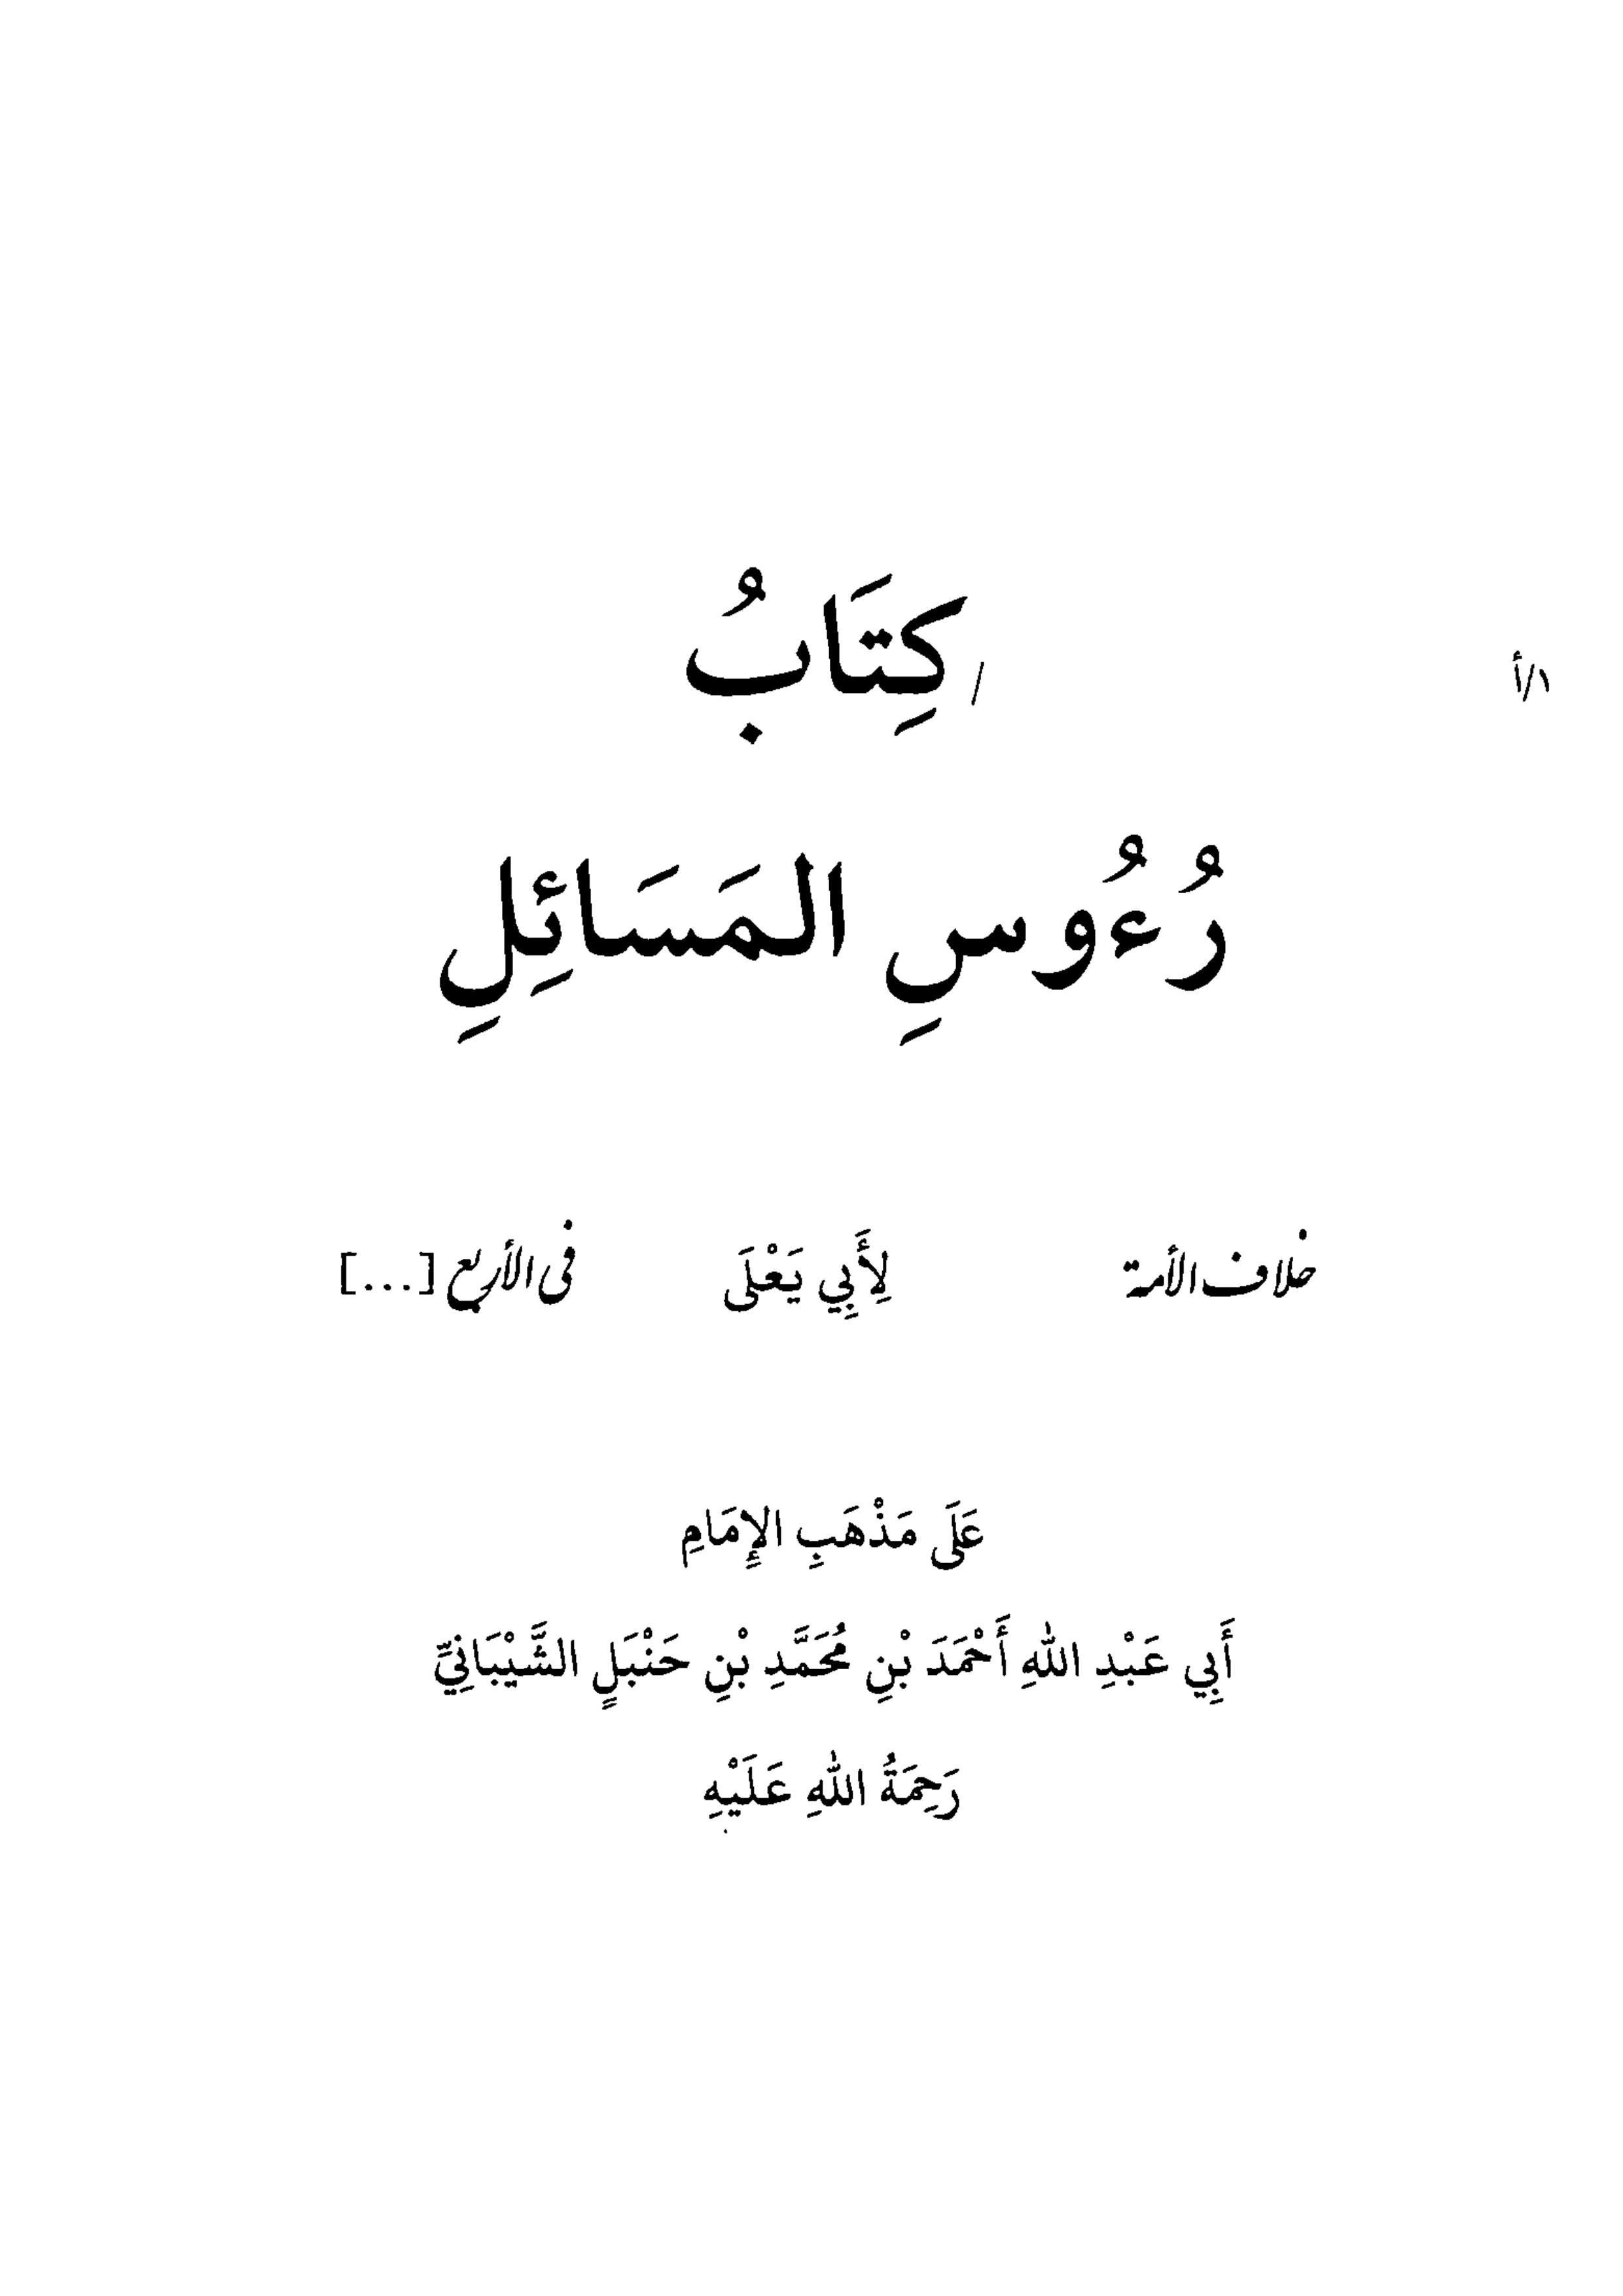 ١/أ
/ كِتَابُ
رُءُوسِ المَسَائِلِ
خلاف الأمة لِأَبِي يَعْلَى فى الأربع [...]
عَلَى مَذْهَبِ الإِمَامِ
أَبِي عَبْدِ اللهِ أَحْمَدَ بْنِ مُحَمَّدِ بْنِ حَنْبَلٍ الشَّيْبَانِيِّ
رَحِمَةُ اللهِ عَلَيْهِ